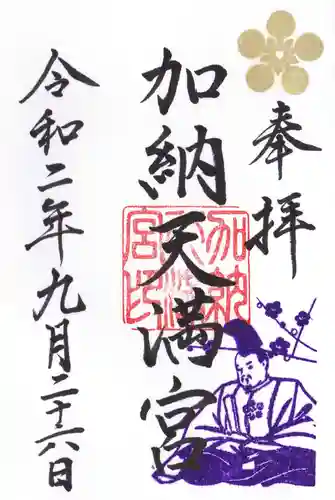 奉拝
加納天満宮
加納天満宮印
令和二年九月二十六日